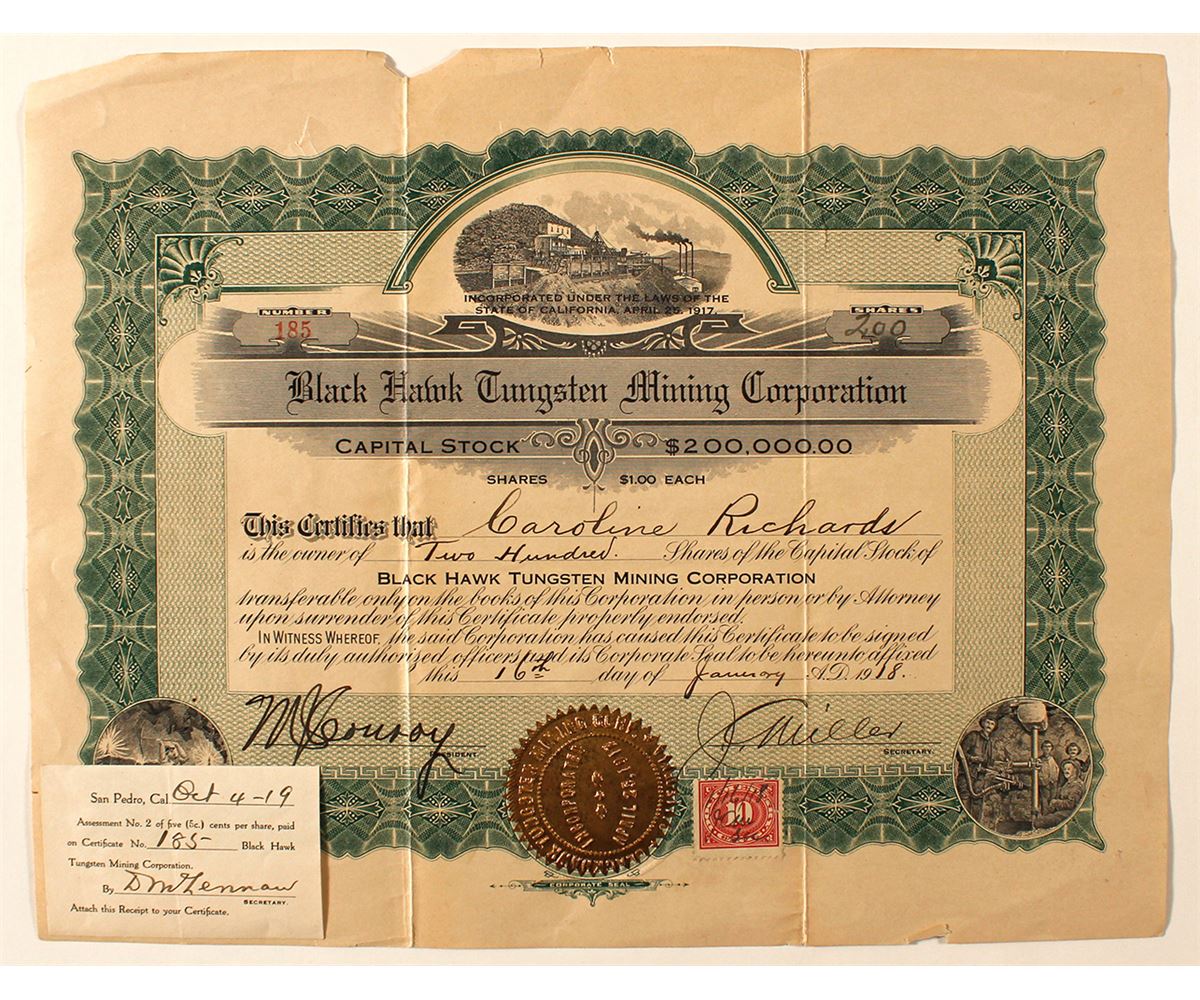 INCORPORATED UNDER THE LAWS OF THE
STATE OF CALIFORNIA, APRIL 25, 1917.
NUMBER
185
SHARES
200
Black Hawk Tungsten Mining Corporation
CAPITAL STOCK $200,000.00
SHARES $1.00 EACH
This Certifies that Caroline Richards
is the owner of Two Hundred. Shares of the Capital Stock of
BLACK HAWK TUNGSTEN MINING CORPORATION
transferable only on the books of this Corporation in person or by Attorney
upon surrender of this Certificate properly endorsed.
IN WITNESS WHEREOF, the said Corporation has caused this Certificate to be signed
by its duly authorized officers and its Corporate Seal to be hereunto affixed
this 16th day of January A.D. 1918.
M J Conroy
PRESIDENT.
J. Miller
SECRETARY.
CORPORATE SEAL
10
San Pedro, Cal. Oct 4-19
Assessment No. 2 of five (5c.) cents per share, paid
on Certificate No. 185 Black Hawk
Tungsten Mining Corporation.
By D McLennan
SECRETARY.
Attach this Receipt to your Certificate.